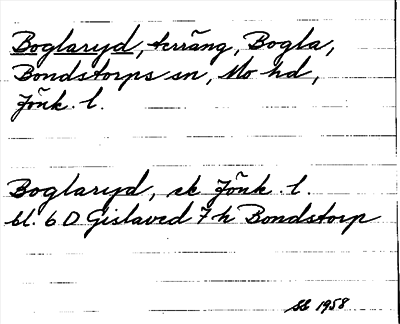 Boglaryd, terräng, Bogla,
Bondstorps sn, Mo hd,
Jönk. l.
Boglaryd, ek Jönk. l.
bl. 6 D Gislaved 7 h Bondstorp
1958